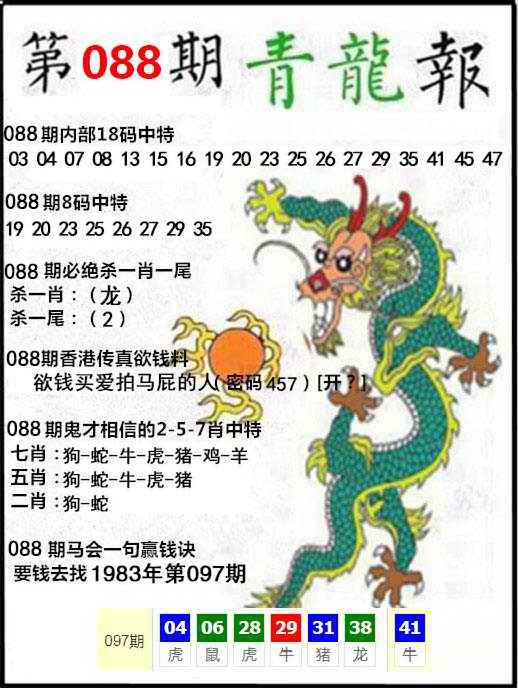 第088期 青龍報
088期内部18码中特
03 04 07 08 13 15 16 19 20 23 25 26 27 29 35 41 45 47
088期8码中特
19 20 23 25 26 27 29 35
088 期必绝杀一肖一尾
杀一肖：（龙）
杀一尾：（2）
088期香港传真欲钱料
欲钱买爱拍马屁的人(密码457）[开？]
088期鬼才相信的2-5-7肖中特
七肖：狗-蛇-牛-虎-猪-鸡-羊
五肖：狗-蛇-牛-虎-猪
二肖：狗-蛇
088 期马会一句赢钱诀
要钱去找1983年第097期
097期 04 06 28 29 31 38 41
虎 鼠 虎 牛 猪 龙 牛